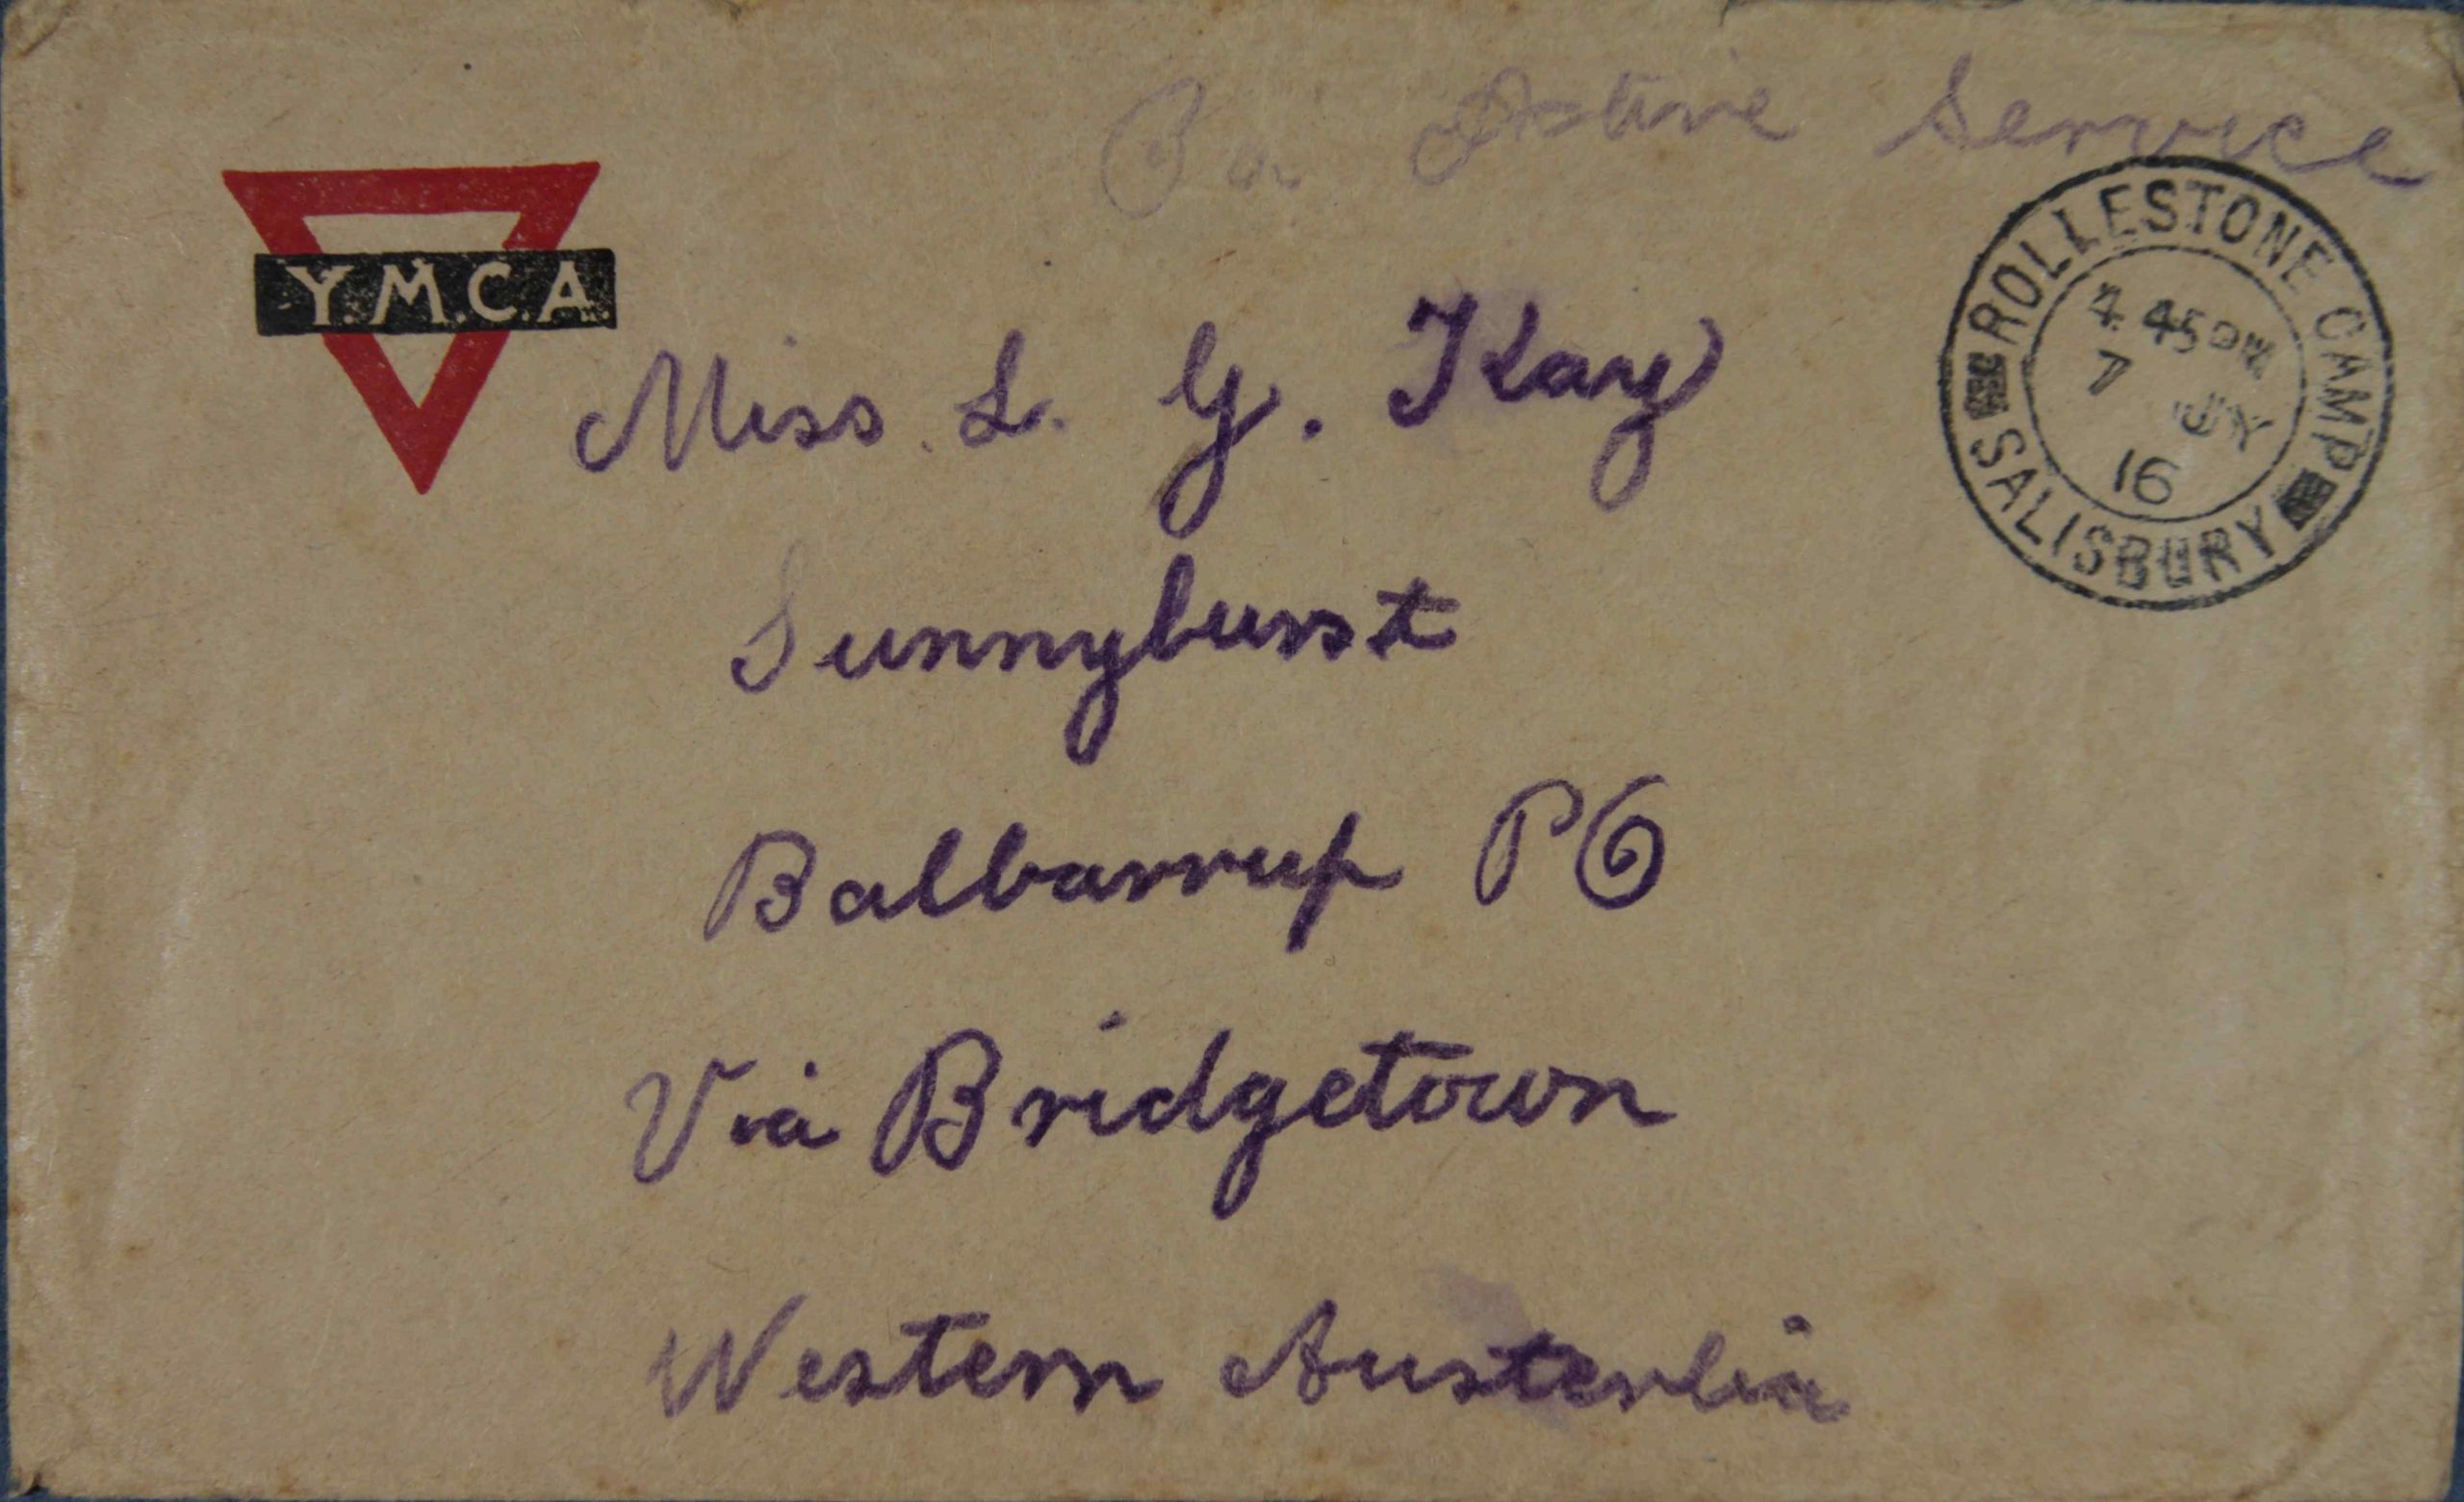 On Active Service
Y.M.C.A.
ROLLESTONE CAMP
4.45PM
7 JY
16
SALISBURY
Miss. L. G. Kay
Sunnyburst
Balbarrup PO
Via Bridgetown
Western Austerlia